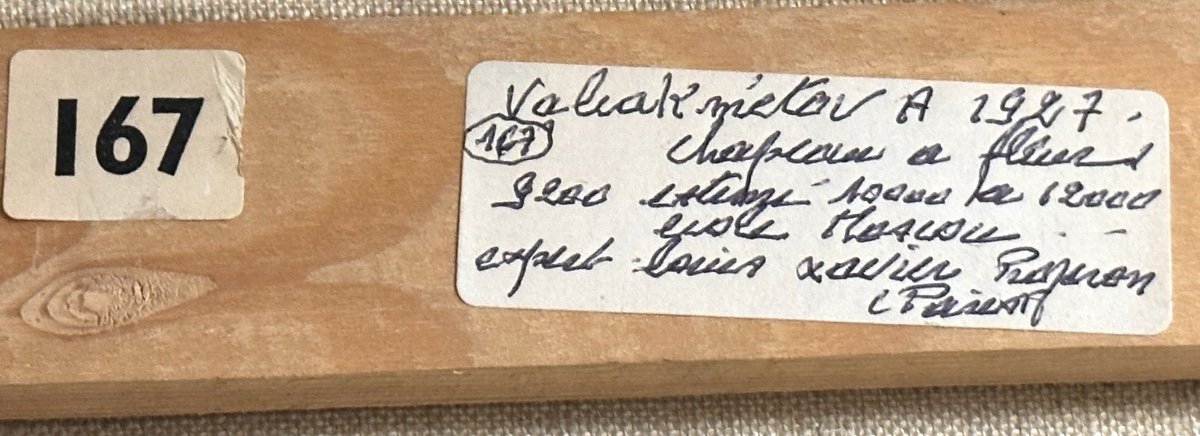 167
Valiakmetov A 1927.
167
chapeau a fleurs
9200 estimé 10000 a 12000
école Moscou
expert Louis Xavier
(Paris)